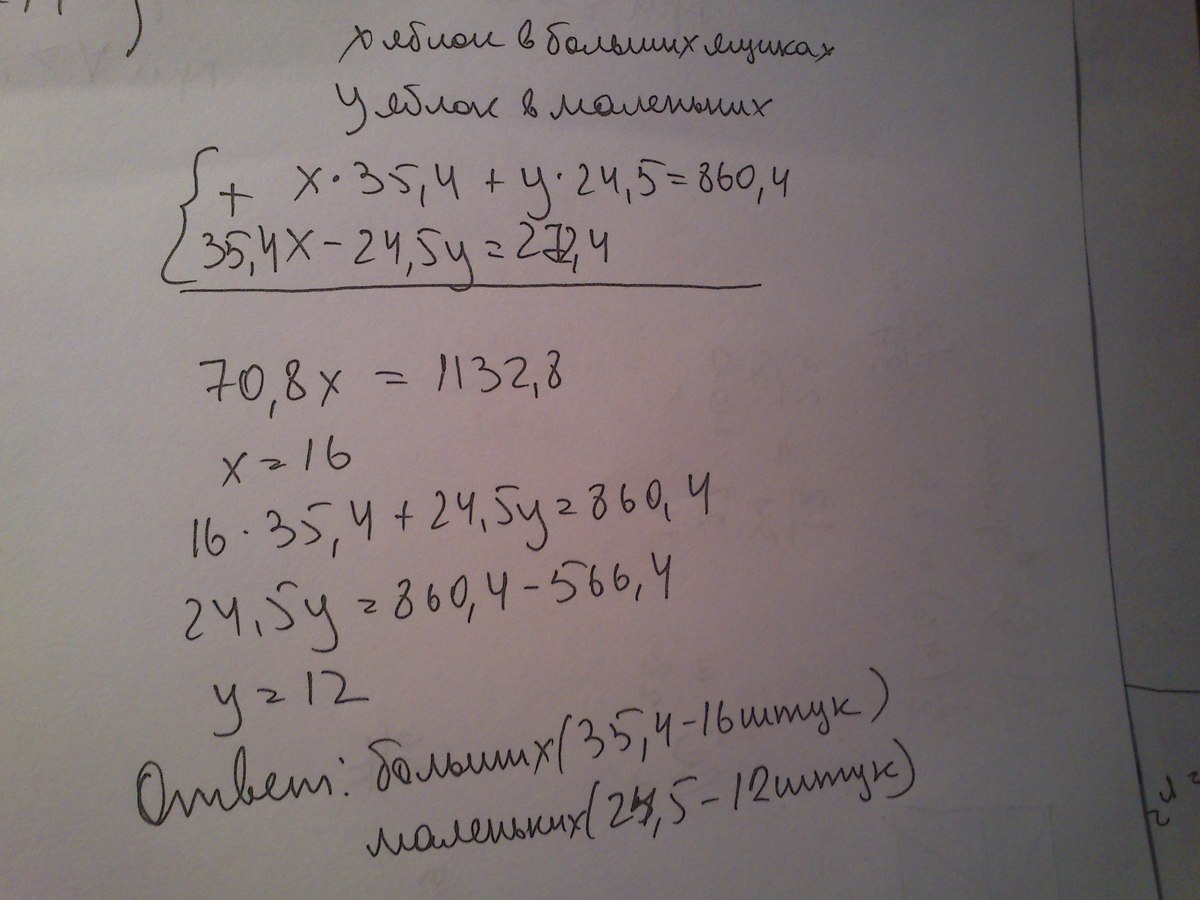 x яблок в больших ящиках
y яблок в маленьких
+ x·35,4 + y·24,5=860,4
35,4x-24,5y=272,4
70,8x = 1132,8
x=16
16·35,4+24,5y=860,4
24,5y=860,4-566,4
y=12
Ответ: больших(35,4-16штук)
маленьких(24,5-12штук)